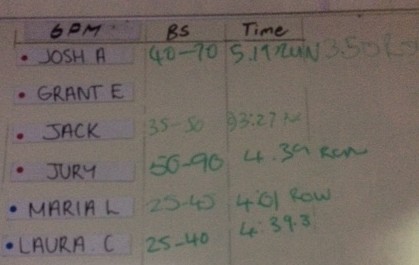 6PM BS Time
JOSH A 40-70 5.19 RUN 3.50
GRANT E
JACK 35-50
JURY 50-90 4.39 RUN
MARIA L 25-45 4:01 ROW
LAURA. C 25-40 4:39.3